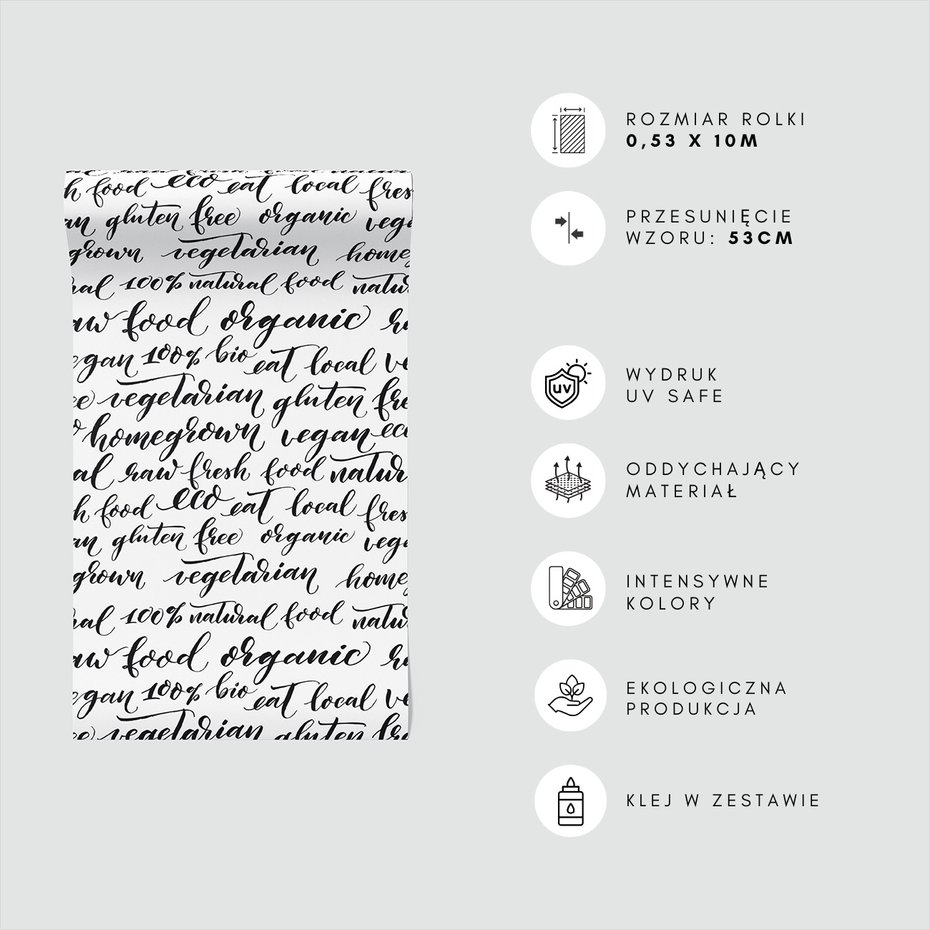 h food eco eat local fres
an gluten free organic vegan
grown vegetarian home
ral 100% natural food natu
aw food organic
egan 100% bio eat local ve
ee vegetarian gluten fre
homegrown vegan eco
al raw fresh food natur
h food eco eat local fres
an gluten free organic vega
grown vegetarian home
ral 100% natural food natu
aw food organic
egan 100% bio eat local ve
ee vegetarian gluten fre
ROZMIAR ROLKI
0,53 X 10M
PRZESUNIĘCIE
WZORU: 53CM
UV
WYDRUK
UV SAFE
ODDYCHAJĄCY
MATERIAŁ
INTENSYWNE
KOLORY
EKOLOGICZNA
PRODUKCJA
KLEJ W ZESTAWIE